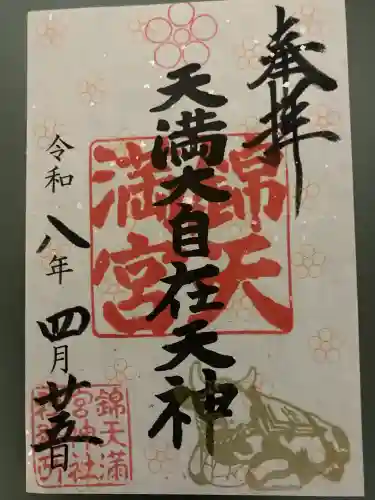 奉拝
天満大自在天神
錦天
満宮
令和八年四月廿五日
錦天満
宮神社
社務所